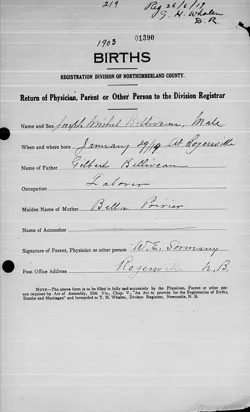 219
Reg 26/6/19
G. H. Whalen
D. R
1903 01390
BIRTHS
REGISTRATION DIVISION OF NORTHUMBERLAND COUNTY.
Return of Physician, Parent or Other Person to the Division Registrar
Name and Sex Joseph Michel Belliveau, Male
When and where born January 29/19 At Rogersville
Name of Father Gilbert Belliveau
Occupation Laborer
Maiden Name of Mother Poirier
Name of Accoucher
Signature of Parent, Physician or other person W. E. Sormany
Post Office Address Rogersville N. B.
NOTE—The above form is to be filled in fully and accurately by the Physician, Parent or other person required by Act of Assembly, 50th Vic., Chap. V., "An Act to provide for the Registration of Births, Deaths and Marriages" and forwarded to T. H. Whalen, Division Registrar, Newcastle, N. B.